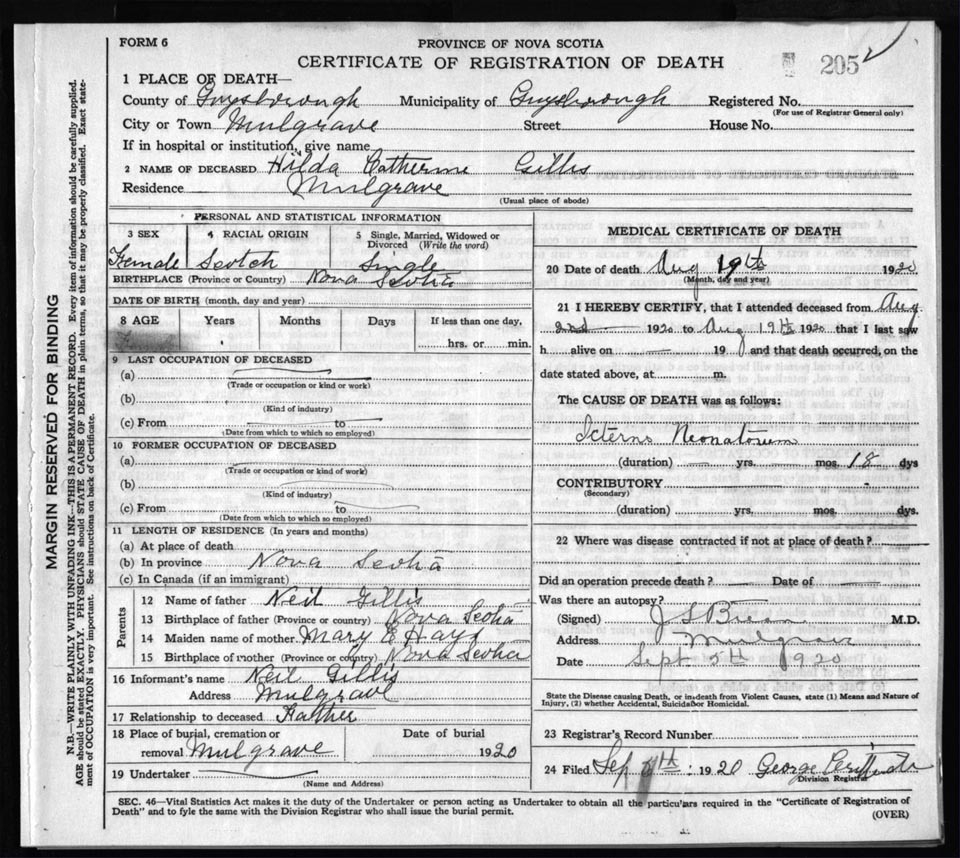 FORM 6
PROVINCE OF NOVA SCOTIA
CERTIFICATE OF REGISTRATION OF DEATH
205
1 PLACE OF DEATH—
County of Guysborough Municipality of Guysborough Registered No.
(For use of Registrar General only)
City or Town Mulgrave Street House No.
If in hospital or institution, give name
2 NAME OF DECEASED Hilda Catherine Gillis
Residence Mulgrave
(Usual place of abode)
PERSONAL AND STATISTICAL INFORMATION
3 SEX 4 RACIAL ORIGIN 5 Single, Married, Widowed or Divorced (Write the word)
Female Scotch Single
BIRTHPLACE (Province or Country) Nova Scotia
DATE OF BIRTH (month, day and year)
8 AGE Years Months Days If less than one day,
hrs. or min.
9 LAST OCCUPATION OF DECEASED
(a)
(Trade or occupation or kind of work)
(b)
(Kind of industry)
(c) From to
(Date from which to which so employed)
10 FORMER OCCUPATION OF DECEASED
(a)
(Trade or occupation or kind of work)
(b)
(Kind of industry)
(c) From to
(Date from which to which so employed)
11 LENGTH OF RESIDENCE (In years and months)
(a) At place of death
(b) In province Nova Scotia
(c) In Canada (if an immigrant)
Parents
12 Name of father Neil Gillis
13 Birthplace of father (Province or country) Nova Scotia
14 Maiden name of mother Mary E Hays
15 Birthplace of mother (Province or country) Nova Scotia
16 Informant's name Neil Gillis
Address Mulgrave
17 Relationship to deceased Father
18 Place of burial, cremation or Date of burial
removal Mulgrave 1920
19 Undertaker
(Name and Address)
MEDICAL CERTIFICATE OF DEATH
20 Date of death Aug 19th 1920
(Month, day and year)
21 I HEREBY CERTIFY, that I attended deceased from Aug
2nd 1920 to Aug 19th 1920 that I last saw
h alive on 19 and that death occurred, on the
date stated above, at m.
The CAUSE OF DEATH was as follows:
Icterus Neonatorum
(duration) yrs. mos. 18 dys
CONTRIBUTORY
(Secondary)
(duration) yrs. mos. dys.
22 Where was disease contracted if not at place of death?
Did an operation precede death? Date of
Was there an autopsy?
(Signed) J S M.D.
Address Mulgrave
Date Sept 5th 1920
State the Disease causing Death, or in death from Violent Causes, state (1) Means and Nature of
Injury, (2) whether Accidental, Suicidal or Homicidal.
23 Registrar's Record Number
24 Filed Sep 1920 George
Division Registrar
SEC. 46—Vital Statistics Act makes it the duty of the Undertaker or person acting as Undertaker to obtain all the particulars required in the "Certificate of Registration of
Death" and to fyle the same with the Division Registrar who shall issue the burial permit. (OVER)
MARGIN RESERVED FOR BINDING
N.B.—WRITE PLAINLY WITH UNFADING INK—THIS IS A PERMANENT RECORD. Every item of information should be carefully supplied.
AGE should be stated EXACTLY. PHYSICIANS should STATE CAUSE OF DEATH in plain terms, so that it may be properly classified. Exact state-
ment of OCCUPATION is very important. See instructions on back of Certificate.